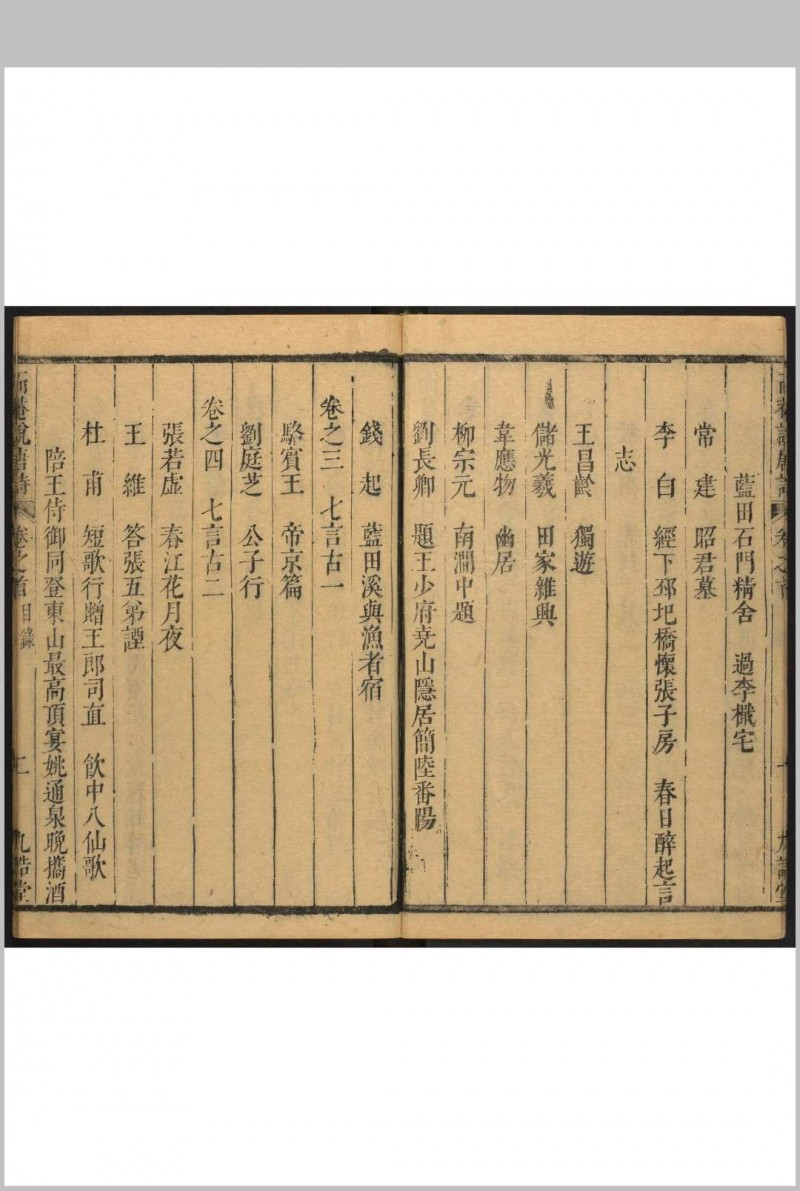 藍田石門精舍　過李檝宅
常　建　昭君墓
李　白　經下邳圯橋懷張子房　春日醉起言
志
王昌齡　獨遊
儲光羲　田家雜興
韋應物　幽居
柳宗元　南澗中題
劉長卿　題王少府堯山隱居簡陸番陽
錢　起　藍田溪與漁者宿
卷之三　七言古一
駱賓王　帝京篇
劉庭芝　公子行
卷之四　七言古二
張若虛　春江花月夜
王　維　答張五弟諲
杜　甫　短歌行贈王郎司直　飲中八仙歌
陪王侍御同登東山最高頂宴姚通泉晚攜酒
而菴說唐詩　卷之首　目錄　九誥堂